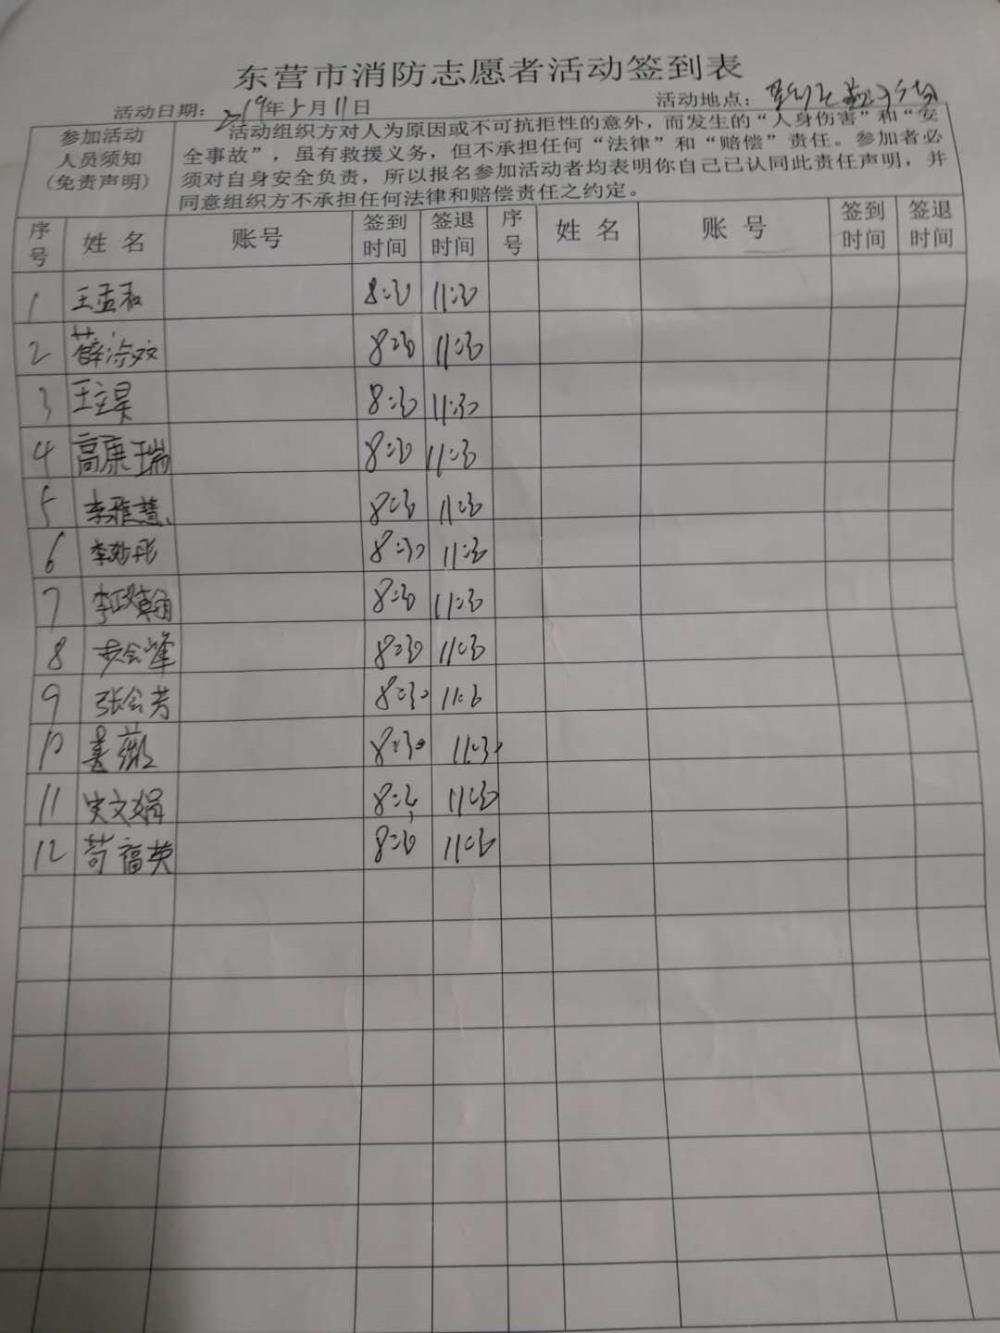 东营市消防志愿者活动签到表
活动日期：2019年5月11日 活动地点：
参加活动人员须知(免责声明)
活动组织方对人为原因或不可抗拒性的意外，而发生的“人身伤害”和“安
全事故”，虽有救援义务，但不承担任何“法律”和“赔偿”责任。参加者必
须对自身安全负责，所以报名参加活动者均表明你自己已认同此责任声明，并
同意组织方不承担任何法律和赔偿责任之约定。
序号 姓名 账号 签到时间 签退时间 序号 姓名 账号 签到时间 签退时间
1 王孟和 8:30 11:30
2 薛 8:30 11:30
3 王立昊 8:30 11:30
4 高康瑞 8:30 11:30
5 李雅慧 8:30 11:30
6 李 8:30 11:30
7 李政翰 8:30 11:30
8 步会峰 8:30 11:30
9 张会芳 8:30 11:30
10 8:30 11:30
11 宋文娟 8:30 11:30
12 苟福英 8:30 11:30